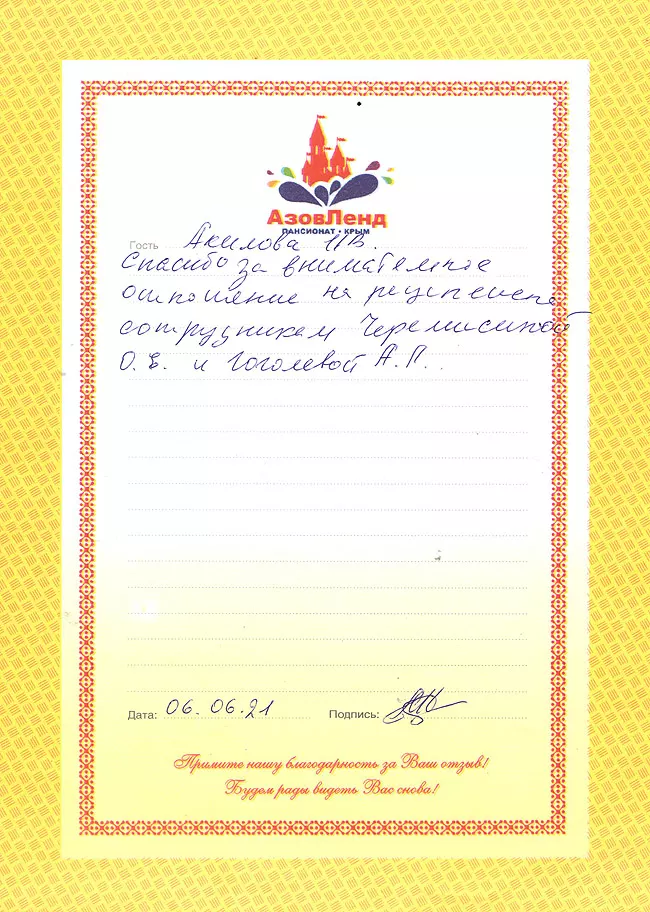 АзовЛенд
ПАНСИОНАТ • КРЫМ
Гость Акилова И.В.
Спасибо за внимательное
отношение на рецепшене
сотрудникам Черемисиной
О.Е. и Гоголевой А.П.
Дата: 06.06.21 Подпись:
Примите нашу благодарность за Ваш отзыв!
Будем рады видеть Вас снова!